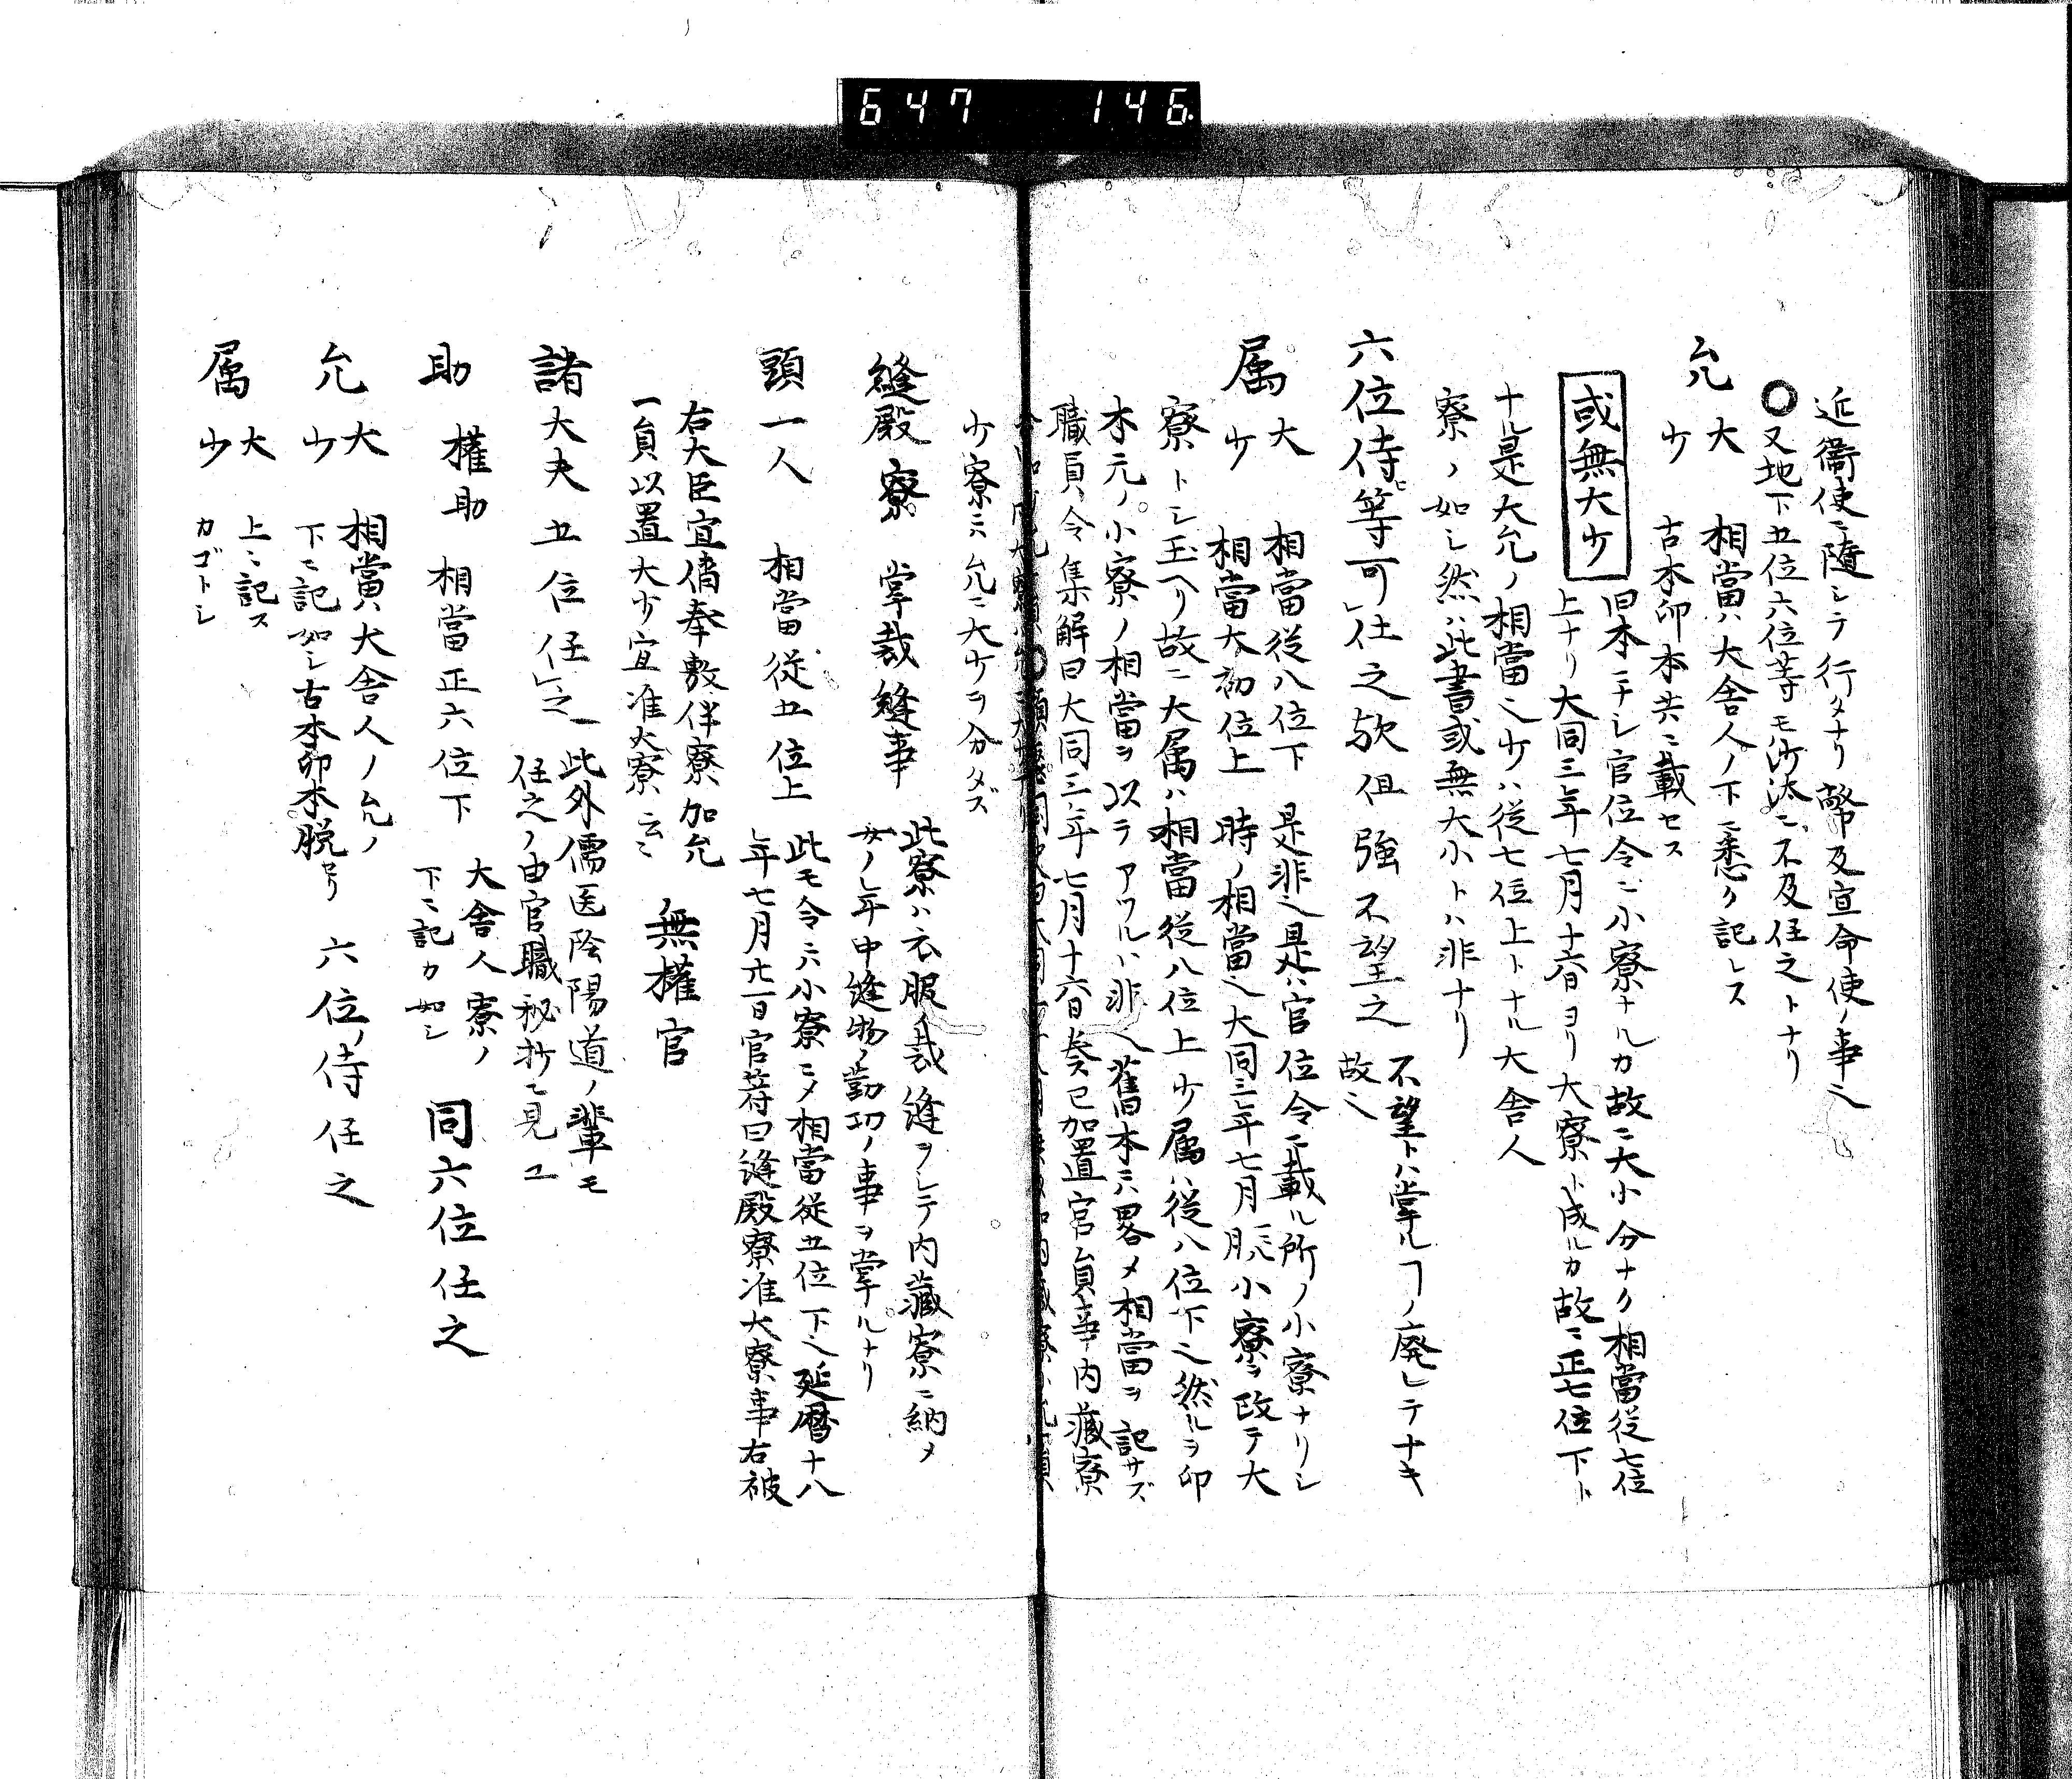 647 146
近衞使ニ隨シテ行タナリ幣及宣命使ノ事也
〇又地下五位六位等モ沙汰ニ不及任之トナリ
允 大 少 相當ハ大舍人ノ下ニ悉ク記レス
古本印本共ニ載セス
或無大少 旧本ニナシ官位令ニ小寮ナルカ故ニ大小分ナク相當従七位
上ナリ大同三年七月十六日ヨリ大寮ト成ルカ故ニ正七位下ト
ナル是大允ノ相當也少ハ従七位上トナル大舍人
寮ノ如シ然ハ此書或無大小トハ非ナリ
六位侍等可任之欤但強不望之 不望トハ掌ルヿノ廃レテナキ
故也
属 大 少 相當従八位下 是非也是ハ官位令ニ載ル所ノ小寮ナリシ
相當大初位上 時ノ相當也大同三年七月小寮ヲ改テ大
寮トシ玉ヘリ故ニ大属ハ相當従八位上少属ハ従八位下也然ルヲ印
本元ノ小寮ノ相當ヲ以テアツルハ非也舊本ニハ畧メ相當ヲ記サズ
職員令集解曰大同三年七月十六日奏ス已加置官員事内藏寮
少寮ニハ允ニ大少ヲ分タズ
縫殿寮 掌裁縫事 此寮ハ衣服ノ裁縫ヲシテ内藏寮ニ納メ
女ノ年中縫物ノ勤功ノ事ヲ掌ルナリ
頭一人 相當従五位上 此モ令ニハ小寮ニメ相當従五位下也延暦十八
年七月廿一日官符曰縫殿寮准大寮事右被
右大臣宣偁奉敷伴寮加允
一員以置大少宜准大寮云々 無權官
諸大夫五位任之 此外儒医陰陽道ノ輩モ
任之ノ由官職秘抄ニ見ユ
助 權助 相當正六位下 大舍人寮ノ
下ニ記カ如シ 同六位任之
允 大 少 相當ハ大舍人ノ允ノ
下ニ記如シ古本印本脱セリ 六位ノ侍任之
属 大 少 上ニ記ス
カゴトシ